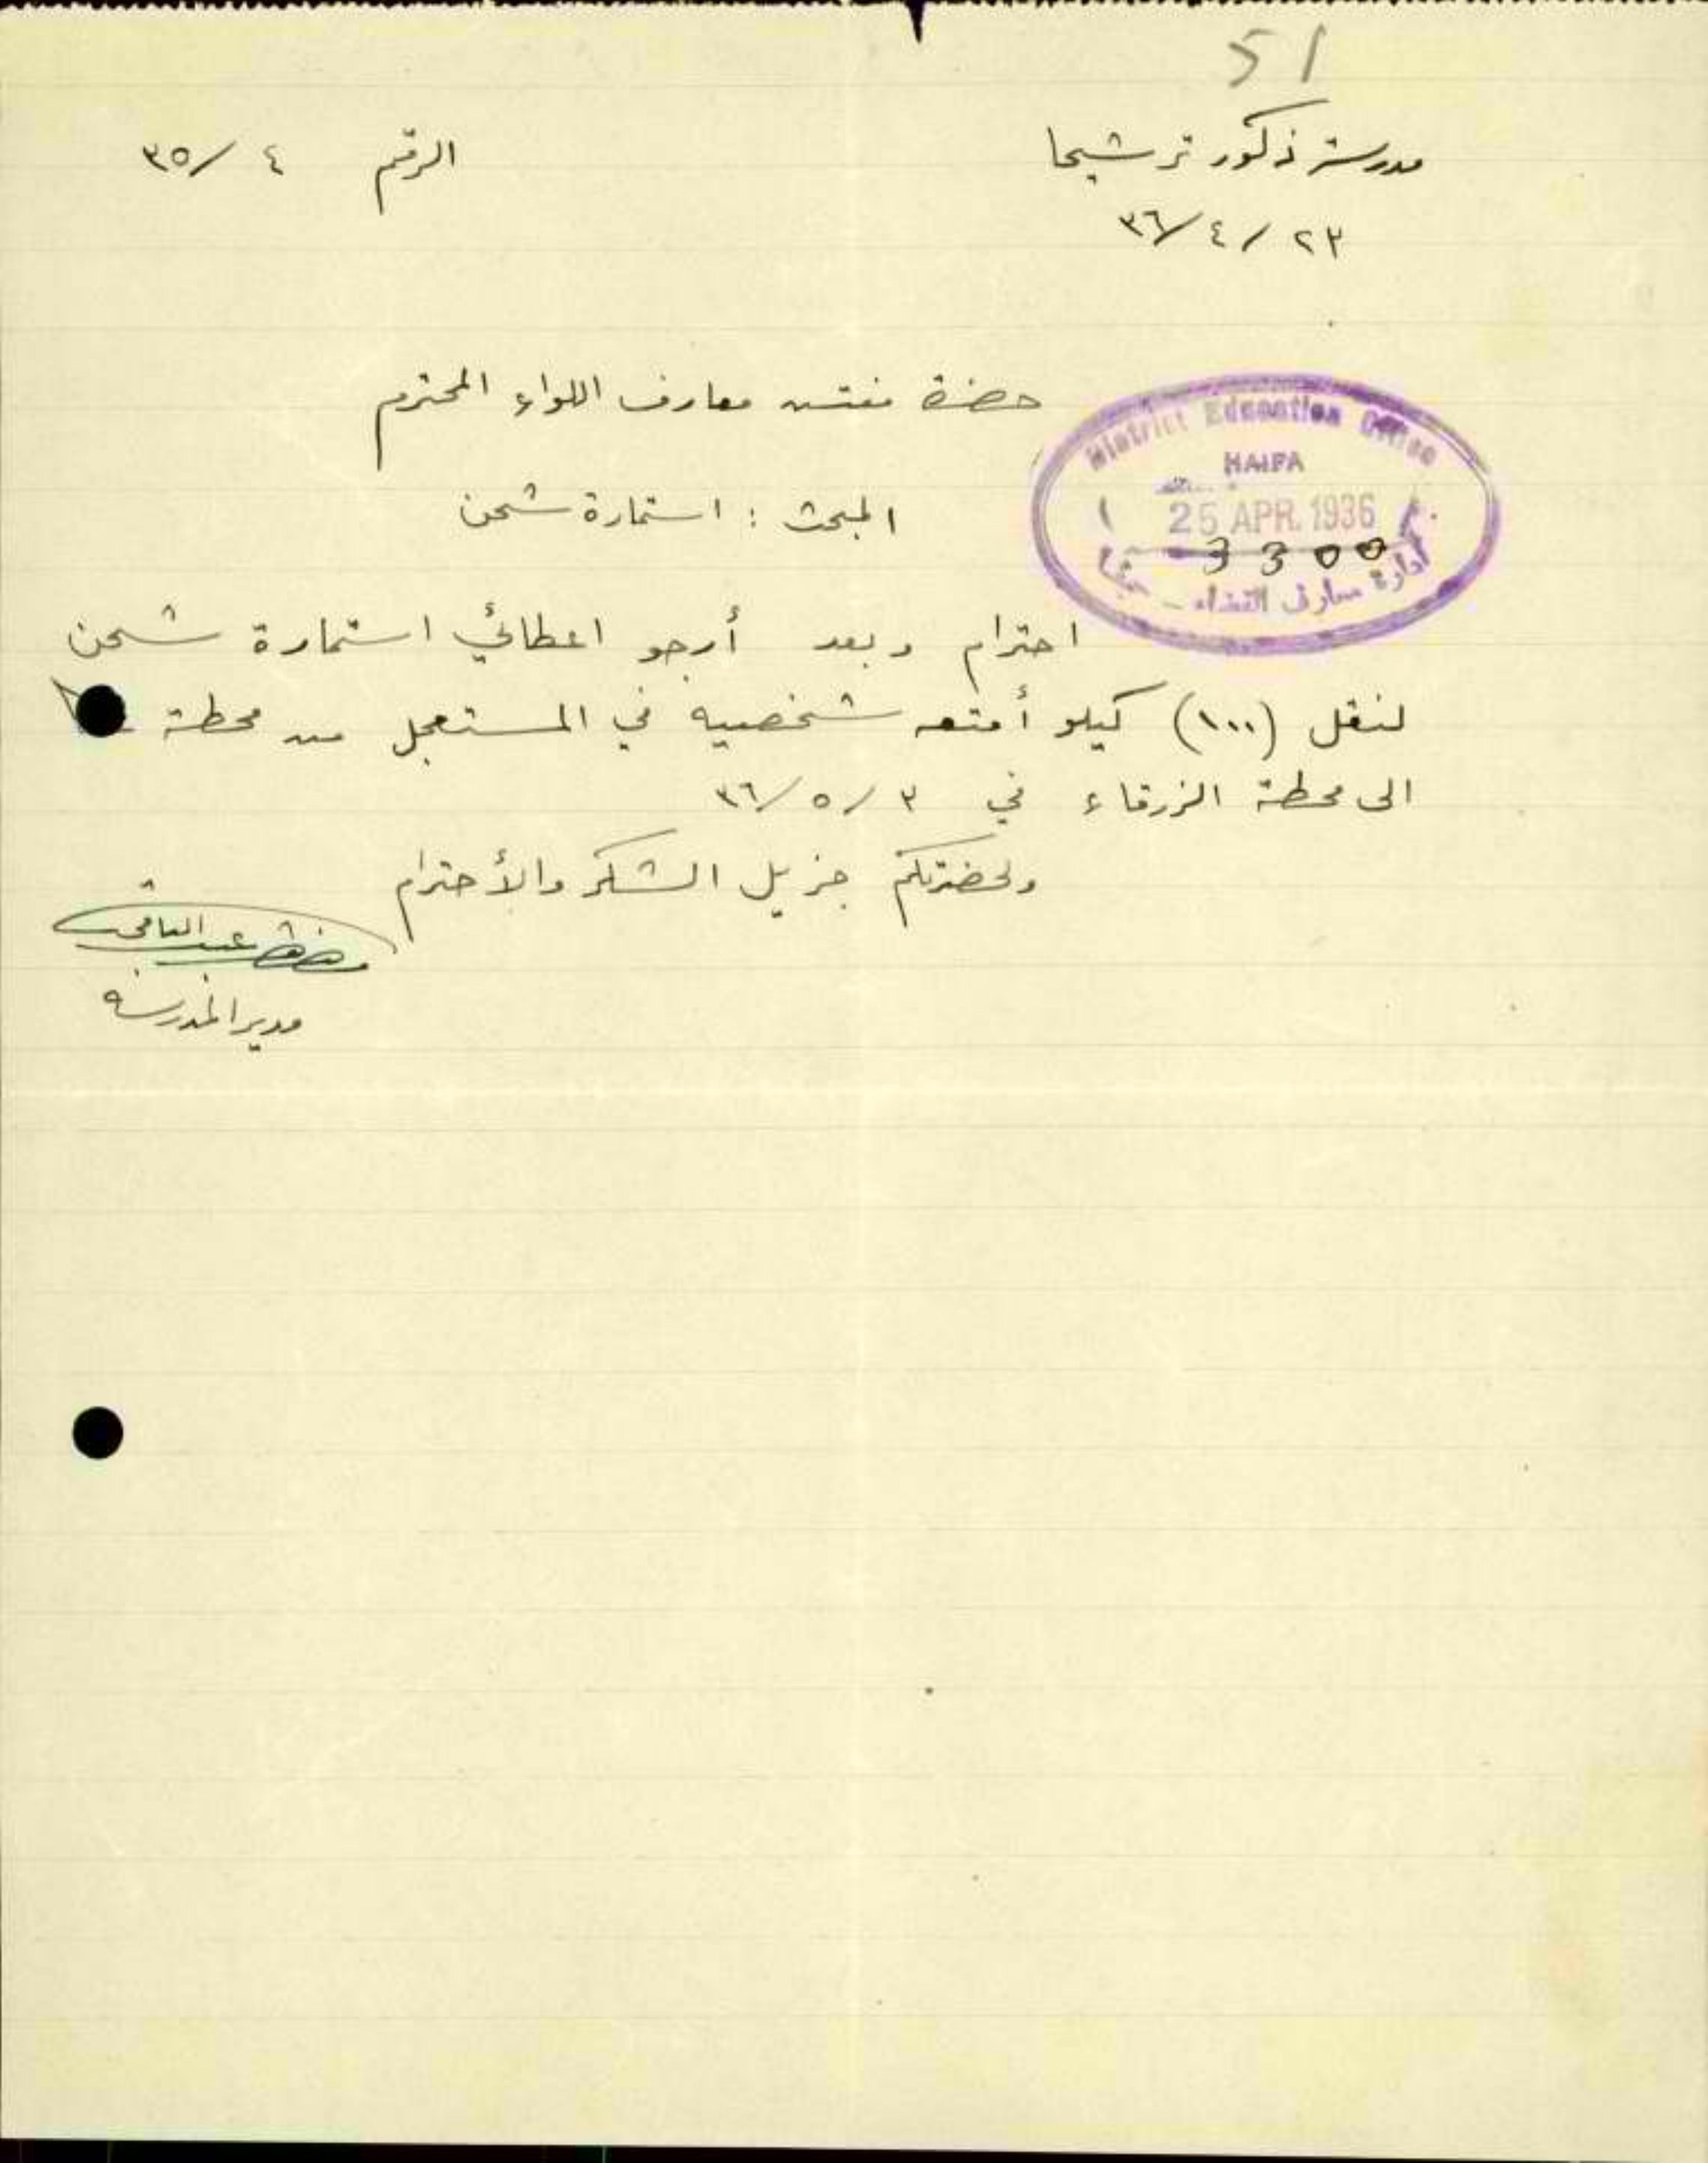 51
مدرسة ذكور ترشيحا
الرقم ٤ /٣٥
٢٣ /٤ /٣٦
حضرة مفتش معارف اللواء المحترم
District Education Office
HAIFA
25 APR. 1936
3300
ادارة معارف القضاء - حيفا
المبحث : استمارة شحن
احترام وبعد أرجو اعطائي استمارة شحن
لنقل (١٠٠) كيلو أمتعه شخصيه في المستعجل من محطة
الى محطة الزرقاء في ٣ /٥ /٣٦
ولحضرتكم جزيل الشكر والأحترام
عبد
مدير المدرسه